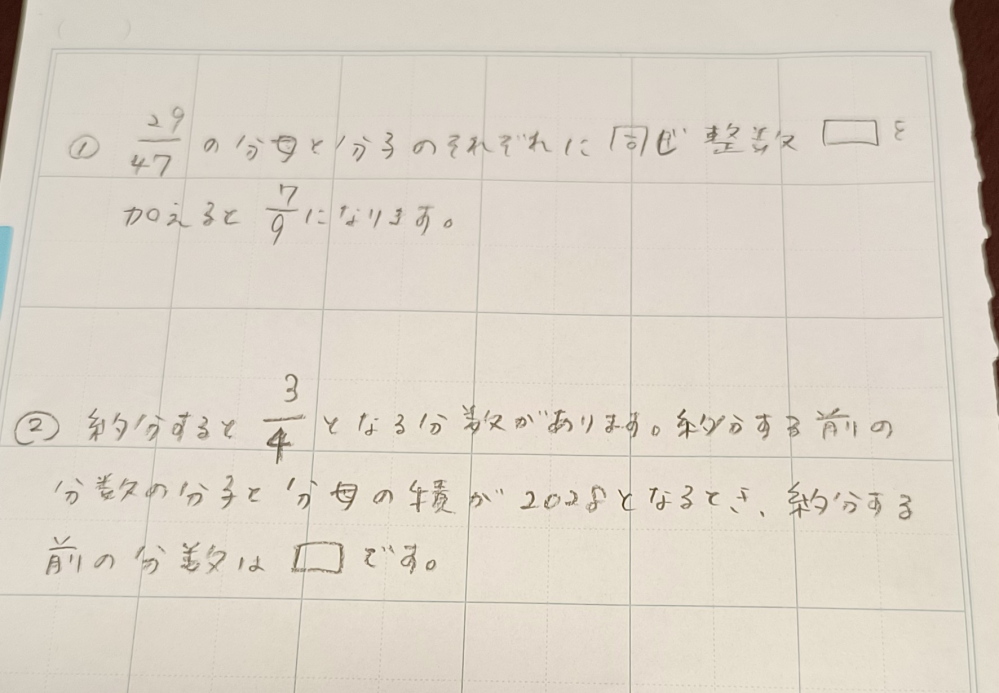 ( )
① 29/47 の分母と分子のそれぞれに同じ整数 □ を
加えると 7/9 になります。
② 約分すると 3/4 となる分数があります。約分する前の
分数の分子と分母の積が2028となるとき、約分する
前の分数は □ です。